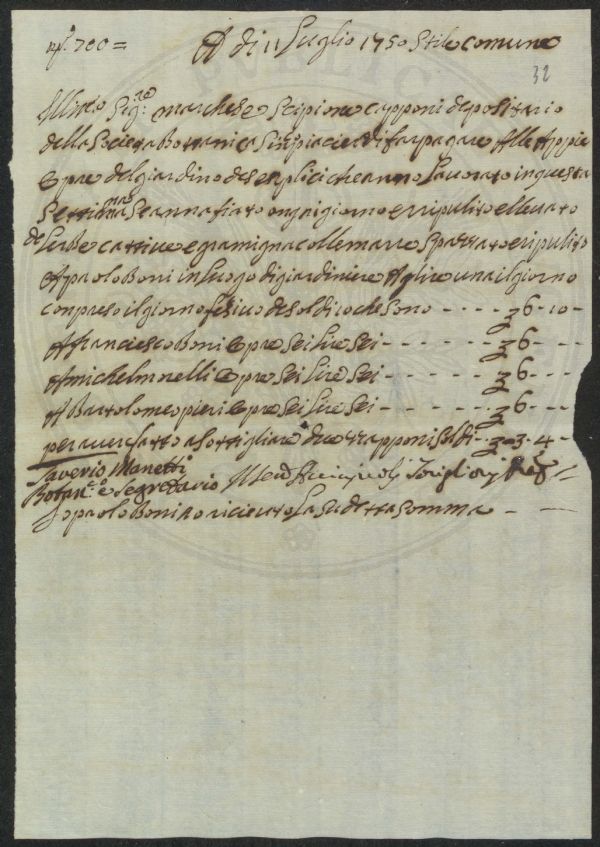 A di 11 Luglio 1750 Stile comune
32
Ill.mo Sig.re marchese Scipione capponi depositario
della Societa Bottanica Si piacie di far pagare Alle Appie
Opre del giardino de senplici che anno Lavorato in questa
Settima.na Se annafiato ongni giorno e rripulito e lleuato
de Lerbe cattive e gramigna colle marre Spazzato e ripulito
A paolo Boni in Luogo di giardiniere A Lire una il giorno
conpreso il giorno festiuo de soldi 10 che Sono - - - - 36 - 10 -
A franciesco Boni Opre Sei Lire Sei - - - - - - 36 - - -
A michel nnelli Opre Sei Lire Sei - - - - - - 36 - - -
A Bartolomeo pieri Opre Sei Lire Sei - - - - - - 36 - - -
per auer fatto asottigliare due zapponi Soldi - 3 - 4 -
Saverio Manetti
Botan.co e Segretario
Io paolo Boni o riceuto La Sudetta Somma - -